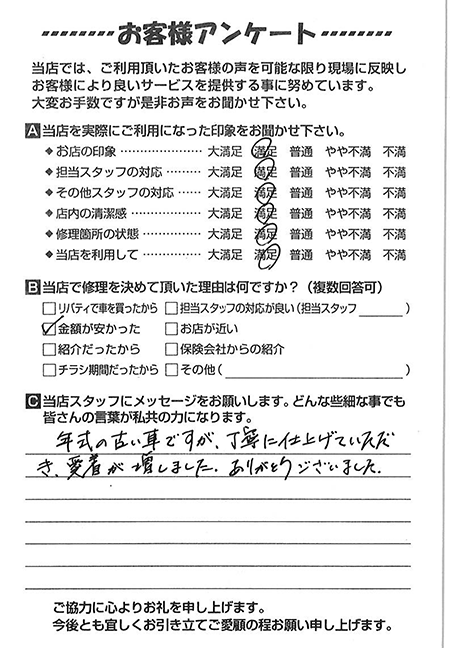 お客様アンケート
当店では、ご利用頂いたお客様の声を可能な限り現場に反映し
お客様により良いサービスを提供する事に努めています。
大変お手数ですが是非お声をお聞かせ下さい。
A 当店を実際にご利用になった印象をお聞かせ下さい。
◆お店の印象 ………………… 大満足 満足 普通 やや不満 不満
◆担当スタッフの対応 ……… 大満足 満足 普通 やや不満 不満
◆その他スタッフの対応 …… 大満足 満足 普通 やや不満 不満
◆店内の清潔感 ……………… 大満足 満足 普通 やや不満 不満
◆修理箇所の状態 …………… 大満足 満足 普通 やや不満 不満
◆当店を利用して …………… 大満足 満足 普通 やや不満 不満
B 当店で修理を決めて頂いた理由は何ですか？（複数回答可）
□リバティで車を買ったから □担当スタッフの対応が良い（担当スタッフ＿＿＿＿）
☑金額が安かった □お店が近い
□紹介だったから □保険会社からの紹介
□チラシ期間だったから □その他（　　　　　　）
C 当店スタッフにメッセージをお願いします。どんな些細な事でも
皆さんの言葉が私共の力になります。
年式の古い車ですが、丁寧に仕上げていただ
き、愛着が増しました。ありがとうございました。
ご協力に心よりお礼を申し上げます。
今後とも宜しくお引き立てご愛顧の程お願い申し上げます。